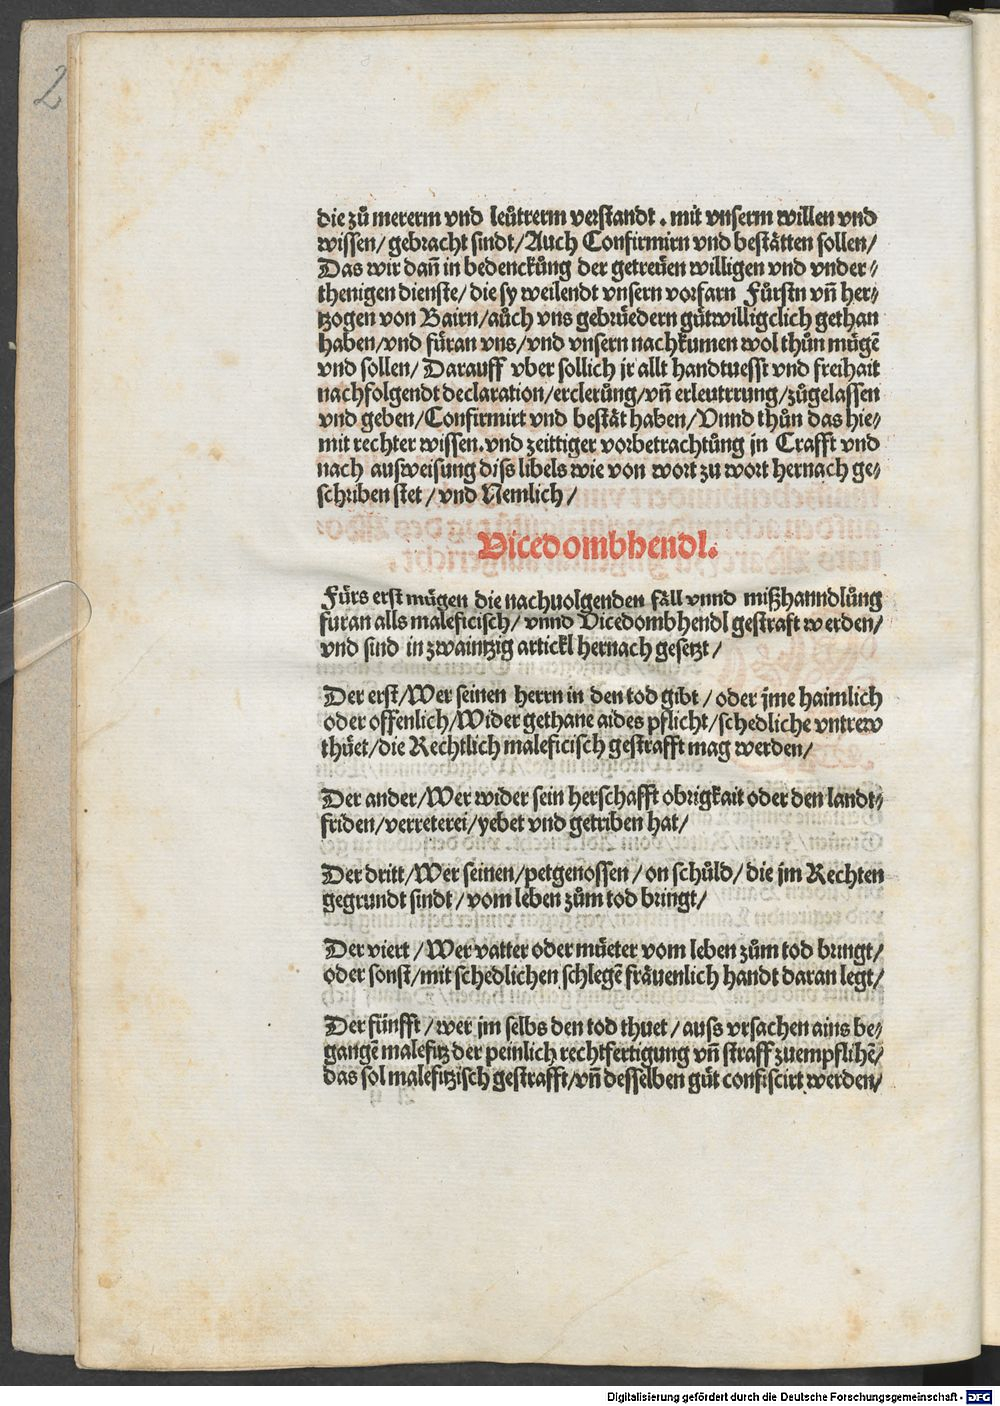 2
die zů mererm vnd leůtrerm verstandt . mit vnserm willen vnd
wissen/ gebracht sindt/Auch Confirmirn vnd bestätten sollen/
Das wir dañ in bedenckůng der getreüen willigen vnd vnder⸗
thenigen dienste/ die sy weilendt vnsern vorfarn Fůrstn vñ her⸗
tzogen von Bairn/aůch vns gebrüedern gůtwilligclich gethan
haben/vnd fůran vns/vnd vnsern nachkumen wol thůn mügẽ
vnd sollen/ Darauff vber sollich jr allt handtuesst vnd freihait
nachfolgendt declaration/ercleruͤng/vñ erleutrrung/zůgelassen
vnd geben/Confirmirt vnd bestät haben/Vnnd thůn das hie⸗
mit rechter wissen.vnd zeittiger vorbetrachtůng in Crafft vnd
nach ausweisung diss libels wie von wort zu wort hernach ge⸗
schriben stet/vnd Nemlich/
Vicedombhendl.
Fürs erst mügen die nachuolgenden fäll vnnd mißhanndlůng
furan alls maleficisch/ vnnd Vicedombhendl gestraft werden/
vnd sind in zwaintzig artickl hernach gesetzt/
Der erst/Wer seinen herrn in den tod gibt/ oder jme haimlich
oder offenlich/Wider gethane aides pflicht/schedliche vntrew
thüet/die Rechtlich maleficisch gestrafft mag werden/
Der ander/Wer wider sein herschafft obrigkait oder den landt⸗
friden/verreterei/yebet vnd getriben hat/
Der dritt/Wer seinen/petgenossen/on schůld/die jm Rechten
gegrundt sindt/vom leben zům tod bringt/
Der viert/Wer vatter oder müeter vom leben zům tod bringt/
oder sonst/mit schedlichen schlegẽ fräuenlich handt daran legt/
Der fünfft/wer jm selbs den tod thuet/auss vrsachen ains be⸗
gangẽ malefitz der peinlich rechtfertigung vñ straff zuempflihẽ/
das sol malefitzisch gestrafft/vñ desselben gůt confiscirt werden/
Digitalisierung gefördert durch die Deutsche Forschungsgemeinschaft - DFG